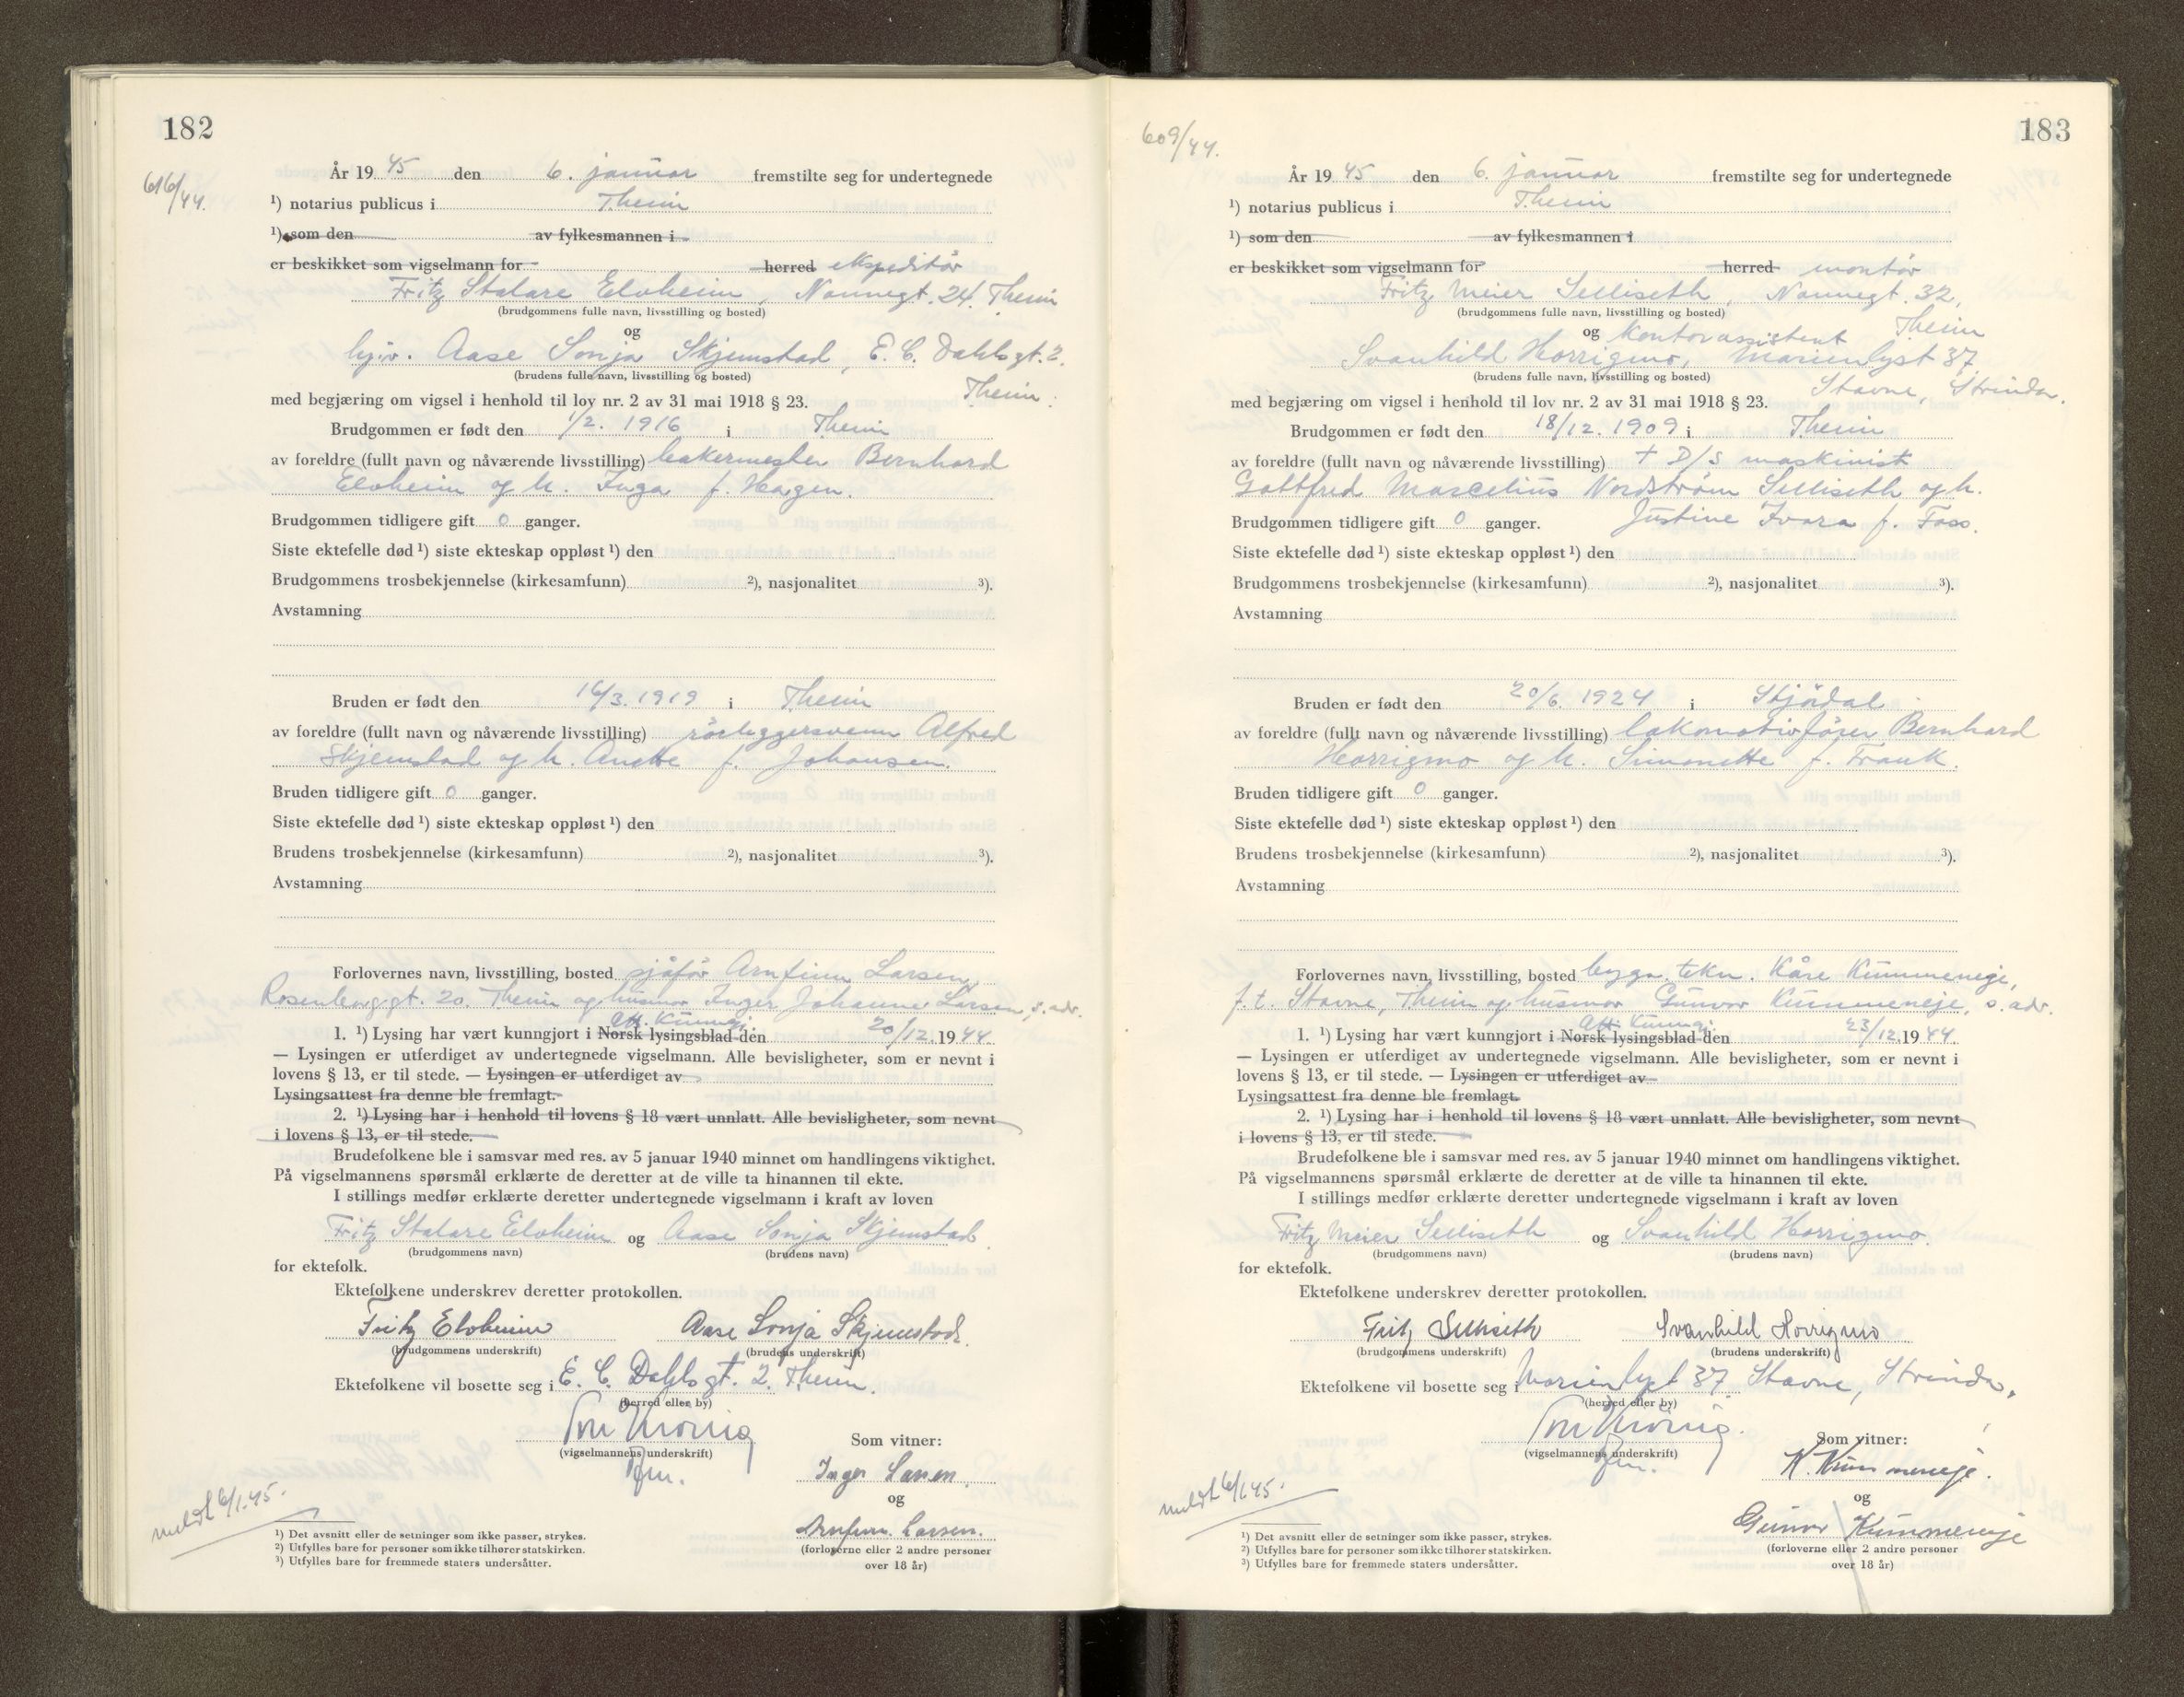 182
616/44.
År 19 45 den 6. januar fremstilte seg for undertegnede
¹) notarius publicus i Theim
¹) som den av fylkesmannen i
er beskikket som vigselmann for herred ekspeditør
Fritz Stalare Elvheim, Nonnegt. 24. Theim
(brudgommens fulle navn, livsstilling og bosted)
og
Aase Sonja Skjemstad, E. C. Dahlsgt. 2.
(brudens fulle navn, livsstilling og bosted)
Theim.
med begjæring om vigsel i henhold til lov nr. 2 av 31 mai 1918 § 23.
Brudgommen er født den 1/2. 1916 i Theim
av foreldre (fullt navn og nåværende livsstilling) bakermester Bernhard
Elvheim og h. Inga f. Hagen.
Brudgommen tidligere gift 0 ganger.
Siste ektefelle død ¹) siste ekteskap oppløst ¹) den
Brudgommens trosbekjennelse (kirkesamfunn) ²), nasjonalitet ³).
Avstamning
Bruden er født den 16/3. 1919 i Theim
av foreldre (fullt navn og nåværende livsstilling) rørleggersvenn Alfred
Skjemstad og h. Anette f. Johansen.
Bruden tidligere gift 0 ganger.
Siste ektefelle død ¹) siste ekteskap oppløst ¹) den
Brudens trosbekjennelse (kirkesamfunn) ²), nasjonalitet ³).
Avstamning
Forlovernes navn, livsstilling, bosted sjåfør Arnfinn Larsen,
Rosenborggt. 20. Theim og husmor Inger Johanne Larsen, s. adr.
1. ¹) Lysing har vært kunngjort i Norsk lysingsblad off. Kunngj. den 20/12. 19 44
— Lysingen er utferdiget av undertegnede vigselmann. Alle bevisligheter, som er nevnt i
lovens § 13, er til stede. — Lysingen er utferdiget av
Lysingsattest fra denne ble fremlagt.
2. ¹) Lysing har i henhold til lovens § 18 vært unnlatt. Alle bevisligheter, som nevnt
i lovens § 13, er til stede.
Brudefolkene ble i samsvar med res. av 5 januar 1940 minnet om handlingens viktighet.
På vigselmannens spørsmål erklærte de deretter at de ville ta hinannen til ekte.
I stillings medfør erklærte deretter undertegnede vigselmann i kraft av loven
Fritz Stalare Elvheim og Aase Sonja Skjemstad
(brudgommens navn) (brudens navn)
for ektefolk.
Ektefolkene underskrev deretter protokollen.
Fritz Elvheim Aase Sonja Skjemstad.
(brudgommens underskrift) (brudens underskrift)
Ektefolkene vil bosette seg i E. C. Dahlsgt. 2. Theim.
(herred eller by)
(vigselmannens underskrift)
Som vitner:
Inger Larsen
og
Arnfinn Larsen.
(forloverne eller 2 andre personer
over 18 år)
meldt 6/1.45.
¹) Det avsnitt eller de setninger som ikke passer, strykes.
²) Utfylles bare for personer som ikke tilhører statskirken.
³) Utfylles bare for fremmede staters undersåtter.
183
609/44.
År 19 45 den 6. januar fremstilte seg for undertegnede
¹) notarius publicus i Theim
¹) som den av fylkesmannen i
er beskikket som vigselmann for herred montør
Fritz Meier Selliseth, Nonnegt. 32,
(brudgommens fulle navn, livsstilling og bosted)
Theim
og kontorassistent
Svanhild Horrigmo, Marienlyst 37
(brudens fulle navn, livsstilling og bosted)
Stavne, Strinda.
med begjæring om vigsel i henhold til lov nr. 2 av 31 mai 1918 § 23.
Brudgommen er født den 18/12. 1909 i Theim
av foreldre (fullt navn og nåværende livsstilling) + D/S maskinist
Gottfred Marcelius Nordstrøm Selliseth og h.
Justine Ivara f. Foss.
Brudgommen tidligere gift 0 ganger.
Siste ektefelle død ¹) siste ekteskap oppløst ¹) den
Brudgommens trosbekjennelse (kirkesamfunn) ²), nasjonalitet ³).
Avstamning
Bruden er født den 20/6. 1924 i Stjördal
av foreldre (fullt navn og nåværende livsstilling) lokomotivfører Bernhard
Horrigmo og h. Simonette f. Frank.
Bruden tidligere gift 0 ganger.
Siste ektefelle død ¹) siste ekteskap oppløst ¹) den
Brudens trosbekjennelse (kirkesamfunn) ²), nasjonalitet ³).
Avstamning
Forlovernes navn, livsstilling, bosted bygn. tekn. Kåre Kummeneje,
f.t. Stavne, Theim og husmor Gunvor Kummeneje, s. adr.
1. ¹) Lysing har vært kunngjort i Norsk lysingsblad off. Kunngj. den 23/12. 19 44
— Lysingen er utferdiget av undertegnede vigselmann. Alle bevisligheter, som er nevnt i
lovens § 13, er til stede. — Lysingen er utferdiget av
Lysingsattest fra denne ble fremlagt.
2. ¹) Lysing har i henhold til lovens § 18 vært unnlatt. Alle bevisligheter, som nevnt
i lovens § 13, er til stede.
Brudefolkene ble i samsvar med res. av 5 januar 1940 minnet om handlingens viktighet.
På vigselmannens spørsmål erklærte de deretter at de ville ta hinannen til ekte.
I stillings medfør erklærte deretter undertegnede vigselmann i kraft av loven
Fritz Meier Selliseth og Svanhild Horrigmo.
(brudgommens navn) (brudens navn)
for ektefolk.
Ektefolkene underskrev deretter protokollen.
Fritz Selliseth Svanhild Horrigmo
(brudgommens underskrift) (brudens underskrift)
Ektefolkene vil bosette seg i Marienlyst 37 Stavne, Strinda.
(herred eller by)
(vigselmannens underskrift)
Som vitner:
K. Kummeneje.
og
Gunvor Kummeneje
(forloverne eller 2 andre personer
over 18 år)
meldt 6/1.45.
¹) Det avsnitt eller de setninger som ikke passer, strykes.
²) Utfylles bare for personer som ikke tilhører statskirken.
³) Utfylles bare for fremmede staters undersåtter.